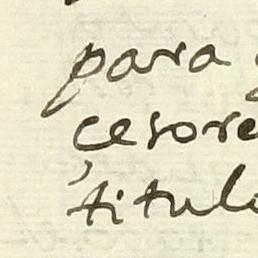 para
cesore
titulo